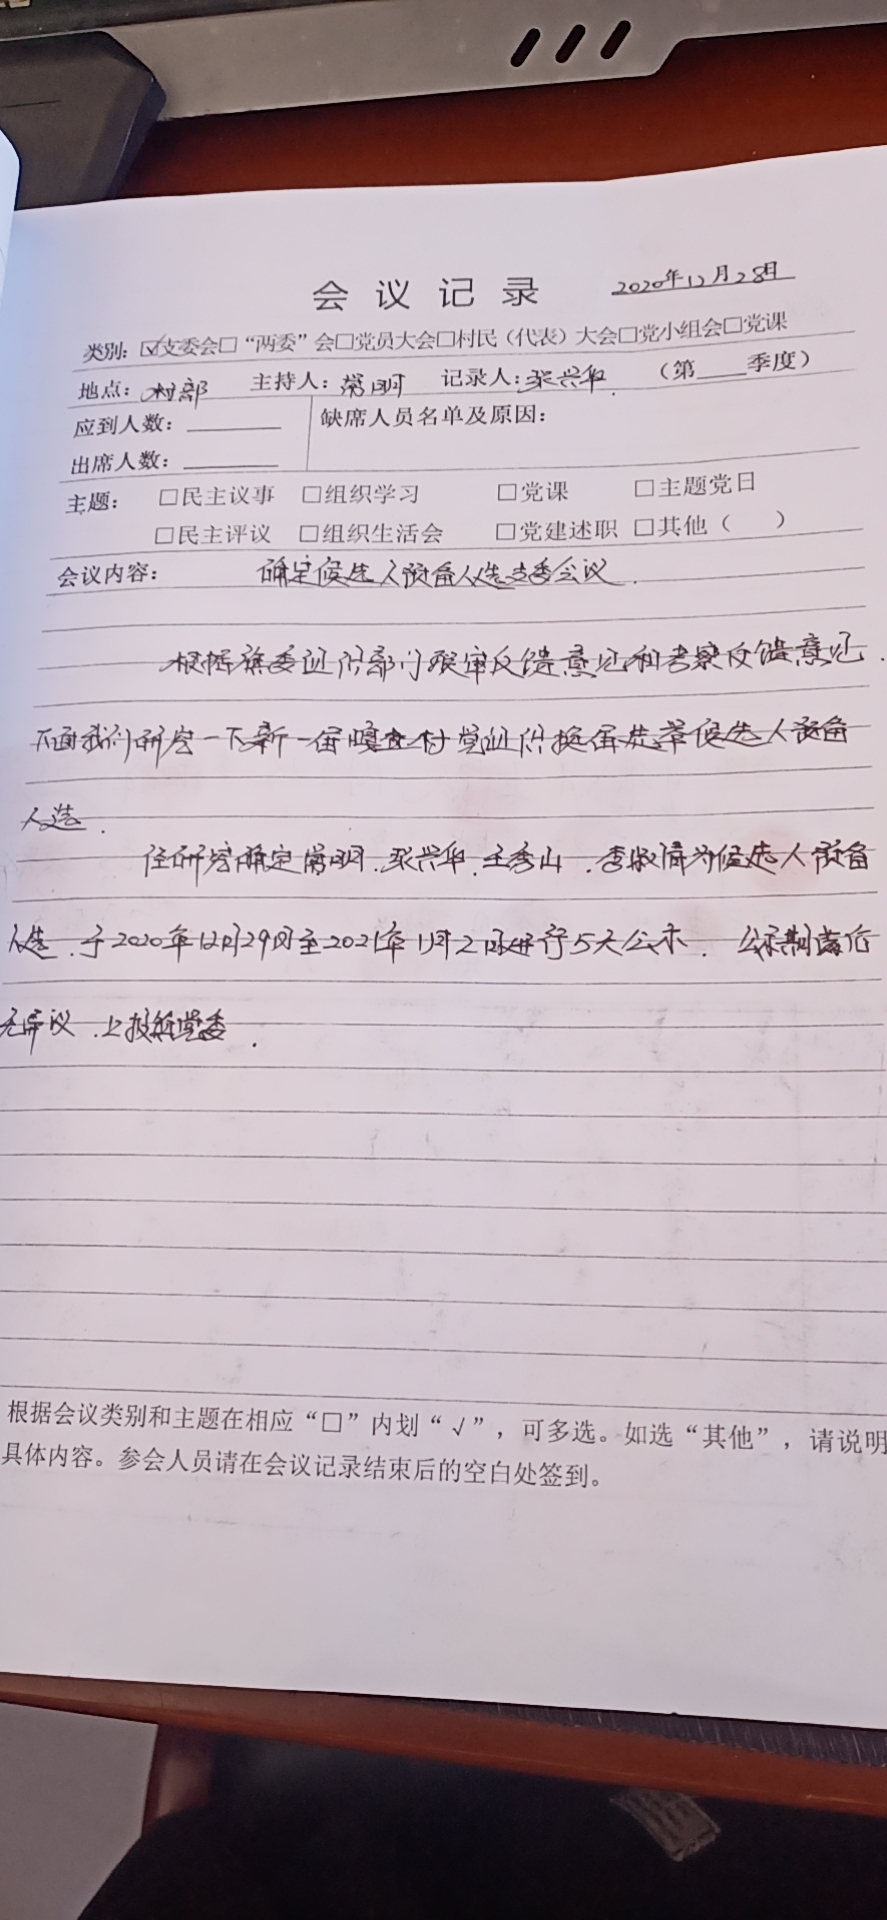 会议记录 2020年12月28日
类别：☑支委会□“两委”会□党员大会□村民（代表）大会□党小组会□党课
地点：村部 主持人：常明 记录人：张兴华 （第____季度）
应到人数：______ 缺席人员名单及原因：
出席人数：______
主题： □民主议事 □组织学习 □党课 □主题党日
□民主评议 □组织生活会 □党建述职 □其他（ ）
会议内容： 确定候选人预备人选支委会议.
根据旗委组织部门联审反馈意见和考察反馈意见.
下面我们研究一下新一届嘎查村党组织换届选举候选人预备
人选.
经研究确定常明.张兴华.王秀山.李淑倩为候选人预备
人选.于2020年12月29日至2021年1月2日进行5天公示. 公示期满后
无异议.上报镇党委.
根据会议类别和主题在相应“□”内划“√”，可多选。如选“其他”，请说明
具体内容。参会人员请在会议记录结束后的空白处签到。